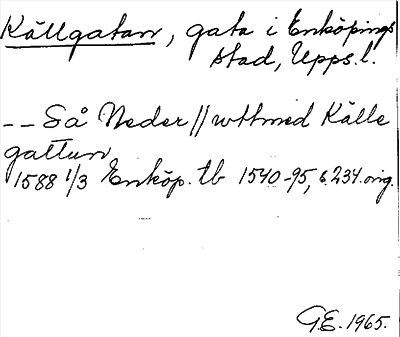 Källgatan, gata i Enköpings
stad, Upps. l.
-- Så Neder // wttmed Källe
gattun
1588 1/3 Enköp. tb 1540-95, s. 234. orig.
G.E. 1965.